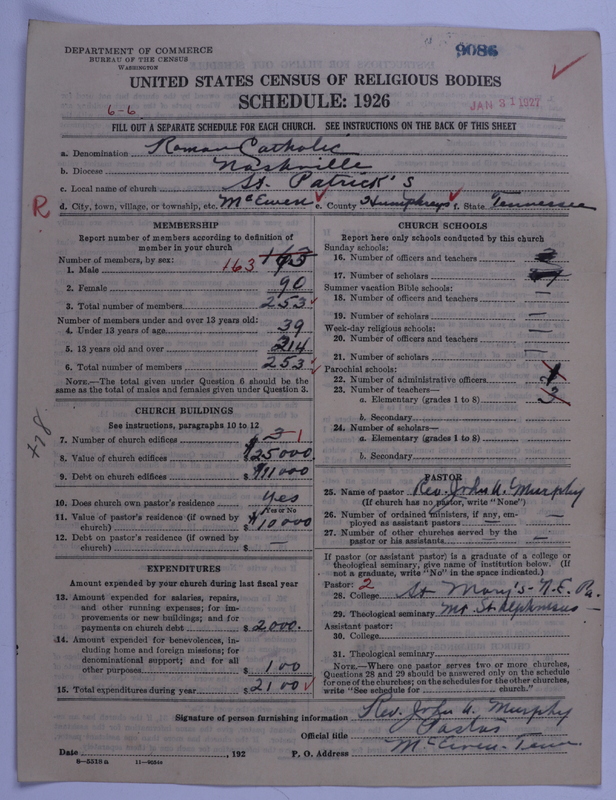 DEPARTMENT OF COMMERCE
BUREAU OF THE CENSUS
WASHINGTON
9086
UNITED STATES CENSUS OF RELIGIOUS BODIES
SCHEDULE: 1926
6-6
JAN 31 1927
FILL OUT A SEPARATE SCHEDULE FOR EACH CHURCH. SEE INSTRUCTIONS ON THE BACK OF THIS SHEET
a. Denomination Roman Catholic
b. Diocese Nashville
c. Local name of church St. Patrick's
R d. City, town, village, or township, etc. McEwen e. County Humphreys f. State Tennessee
MEMBERSHIP
Report number of members according to definition of
member in your church
Number of members, by sex:
1. Male 163
2. Female 90
3. Total number of members 253
Number of members under and over 13 years old:
4. Under 13 years of age 39
5. 13 years old and over 214
6. Total number of members 253
NOTE.—The total given under Question 6 should be the
same as the total of males and females given under Question 3.
CHURCH BUILDINGS
See instructions, paragraphs 10 to 12
7. Number of church edifices 3 1
8. Value of church edifices $25000
9. Debt on church edifices $11000
10. Does church own pastor's residence Yes
Yes or No
11. Value of pastor's residence (if owned by
church) $10000
12. Debt on pastor's residence (if owned by
church) $ —
EXPENDITURES
Amount expended by your church during last fiscal year
13. Amount expended for salaries, repairs,
and other running expenses; for im-
provements or new buildings; and for
payments on church debt $2000.
14. Amount expended for benevolences, in-
cluding home and foreign missions; for
denominational support; and for all
other purposes $100
15. Total expenditures during year $2100
CHURCH SCHOOLS
Report here only schools conducted by this church
Sunday schools:
16. Number of officers and teachers
17. Number of scholars
Summer vacation Bible schools:
18. Number of officers and teachers —
19. Number of scholars —
Week-day religious schools:
20. Number of officers and teachers —
21. Number of scholars —
Parochial schools:
22. Number of administrative officers
23. Number of teachers—
a. Elementary (grades 1 to 8) 3
b. Secondary
24. Number of scholars—
a. Elementary (grades 1 to 8)
b. Secondary
PASTOR
25. Name of pastor Rev. John A. Murphy
(If church has no pastor, write "None")
26. Number of ordained ministers, if any, em-
ployed as assistant pastors —
27. Number of other churches served by the
pastor or his assistants —
If pastor (or assistant pastor) is a graduate of a college or
theological seminary, give name of institution below. (If
not a graduate, write "No" in the space indicated.)
Pastor: 2
28. College St Mary's - N.E. Pa.
29. Theological seminary Mt. St Alphonsus —
Assistant pastor:
30. College
31. Theological seminary
NOTE.—Where one pastor serves two or more churches,
Questions 28 and 29 should be answered only on the schedule
for one of the churches; on the schedules for the other churches,
write "See schedule for church."
Signature of person furnishing information Rev. John A. Murphy
Official title Pastor
Date , 192 P. O. Address McEwen - Tenn
8—5518a 11—9054a